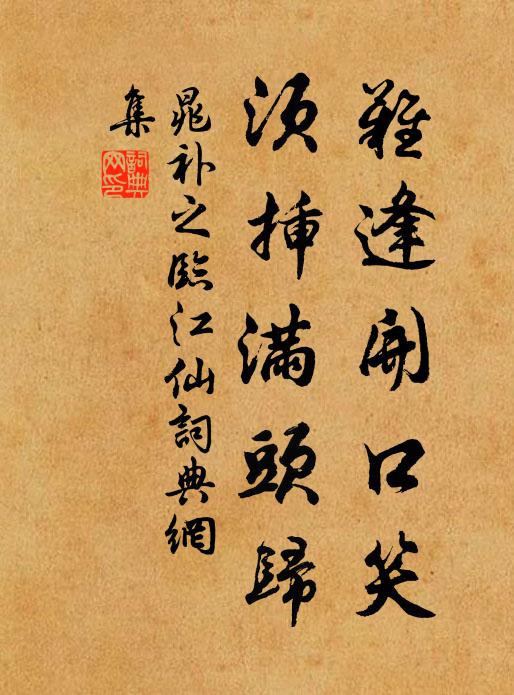 難逢開口笑
須插滿頭歸
晁补之臨江仙詞典網
集
詞典
网印